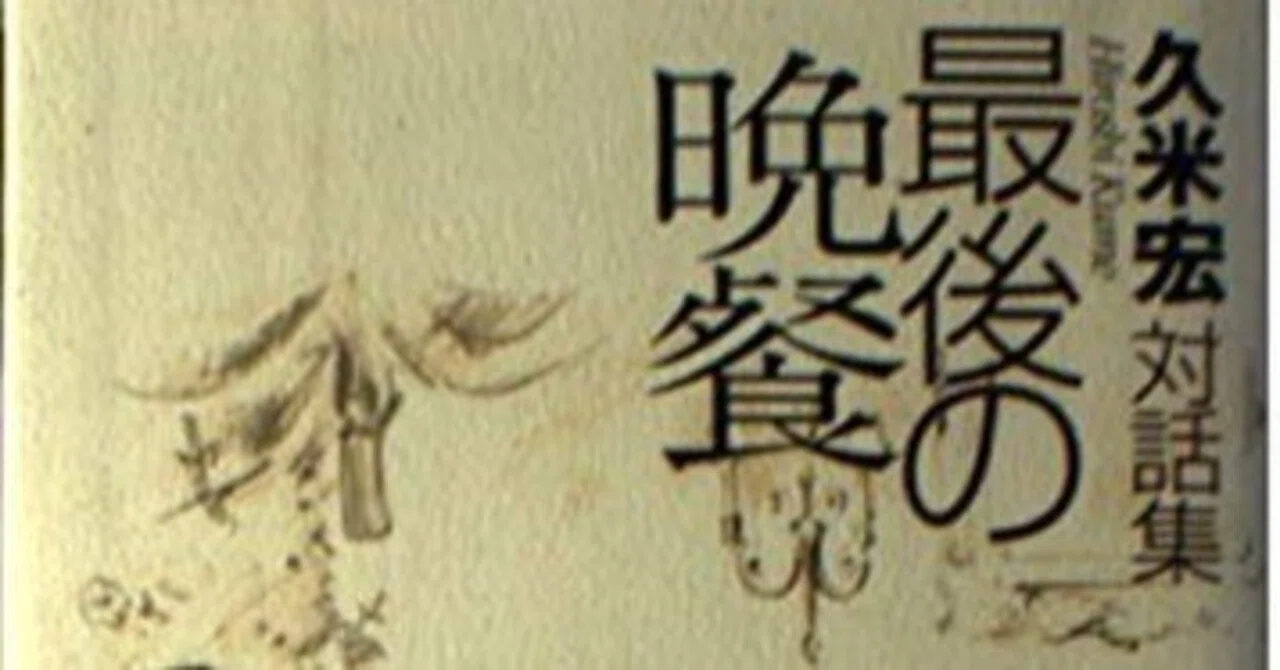 久米宏 対話集
Hiroshi Kume
最後の
晩餐